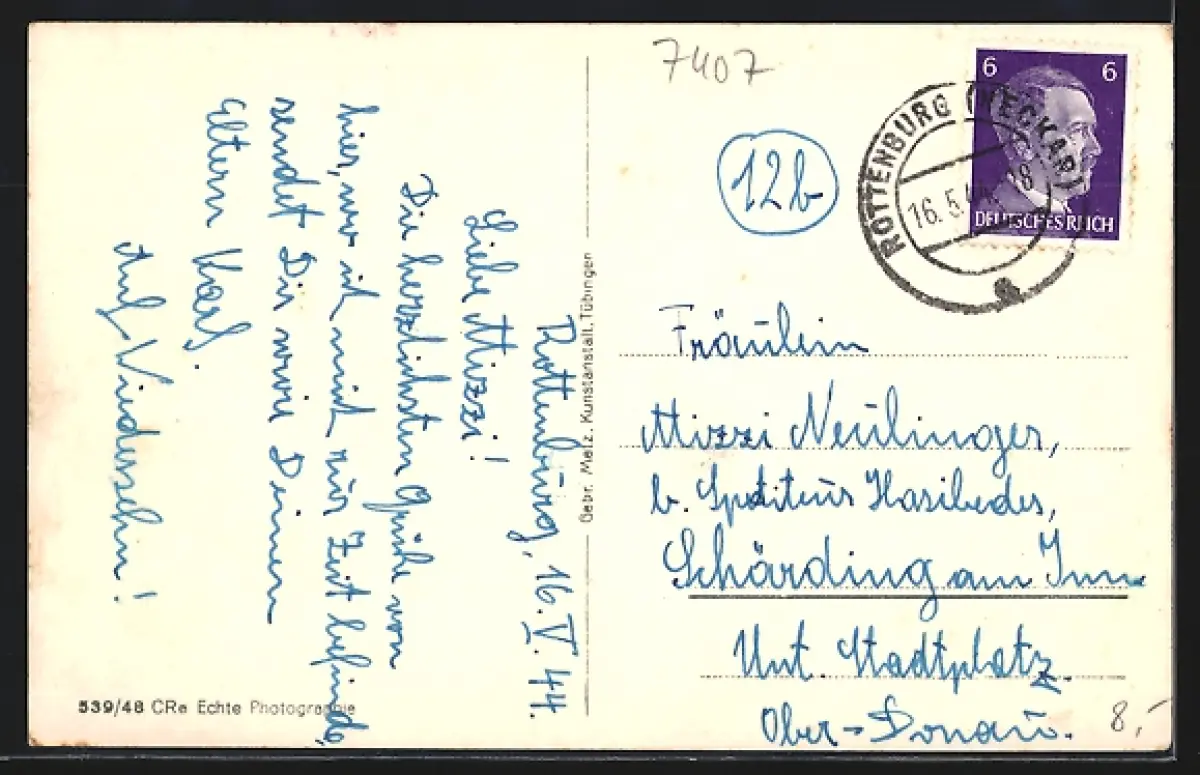 Rottenburg, 16. V. 44.
Liebe Mizzi!
Die herzlichsten Grüße von
hier, wo ich mich zur Zeit befinde,
sendet Dir wie Deinen
Eltern Karl.
Auf Wiedersehn!
539/48 CRe Echte Photographie
Gebr. Metz, Kunstanstalt, Tübingen
7407
12b
6 6
DEUTSCHES REICH
ROTTENBURG (NECKAR)
16.5.44
Fräulein
Mizzi Neulinger,
b. Spediteur Hasibeder,
Schärding am Inn
Unt. Stadtplatz.
Ober-Donau.
8,-